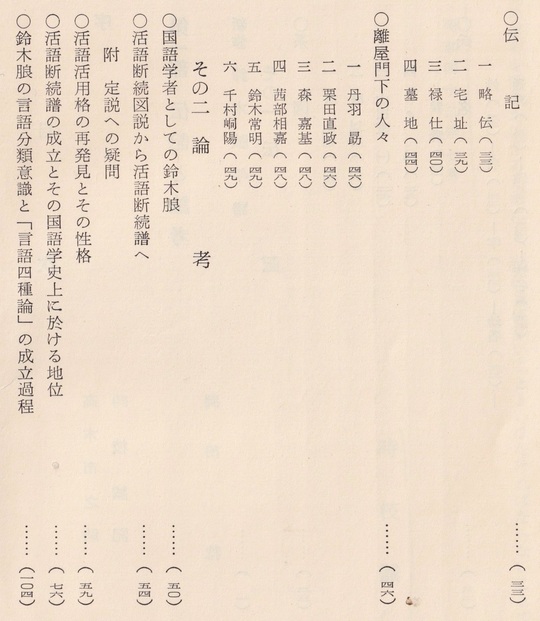 ○伝記……(三三)
一 略伝(三三)
二 宅址(三九)
三 禄仕(四〇)
四 墓地(四四)
○離屋門下の人々……(四六)
一 丹羽勗(四六)
二 栗田直政(四六)
三 森嘉基(四八)
四 茜部相嘉(四八)
五 鈴木常明(四九)
六 千村峒陽(四九)
その二 論考
○国語学者としての鈴木朖……(五〇)
○活語断続図説から活語断続譜へ……(五四)
附 定説への疑問
○活語活用格の再発見とその性格……(五九)
○活語断続譜の成立とその国語学史上に於ける地位……(七六)
○鈴木朖の言語分類意識と「言語四種論」の成立過程……(一〇四)